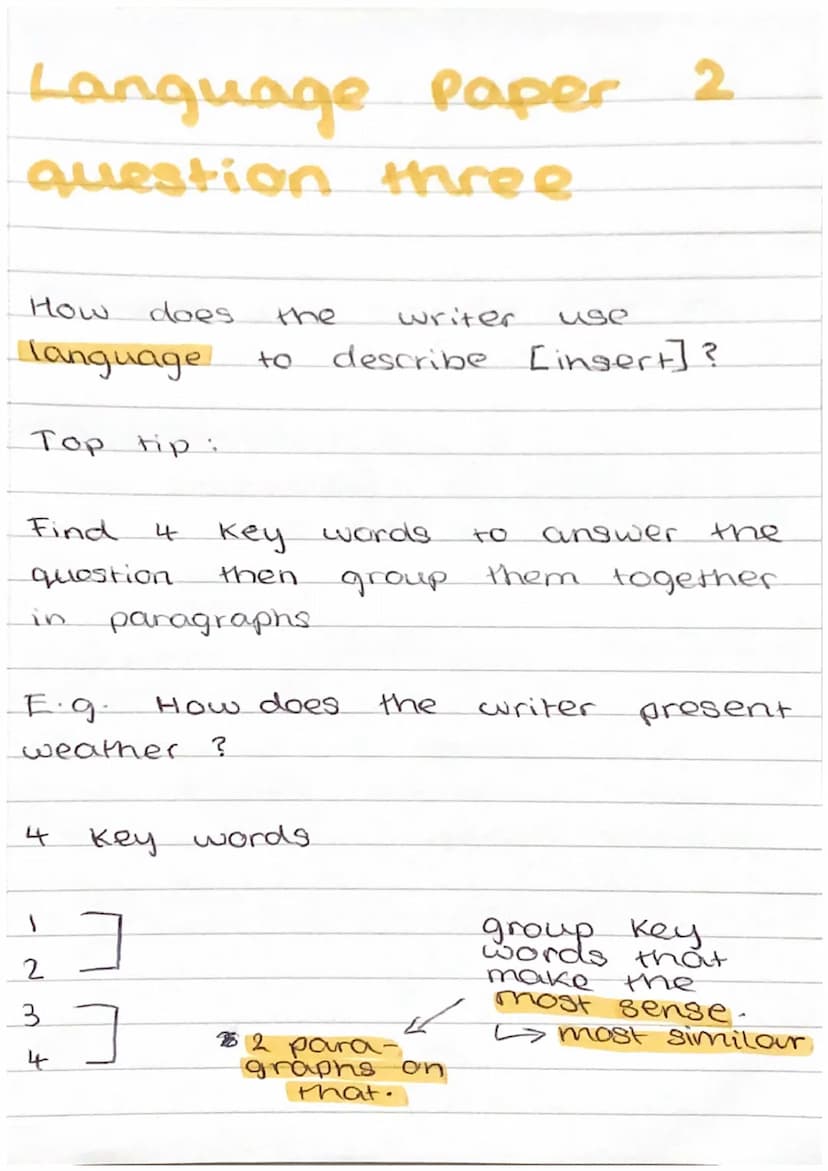 Language Paper 2
question three
How does the writer use
language to describe [insert]?
Top tip:
Find 4 key words to answer the
question then group them together
in paragraphs
E.g. How does the writer present
weather?
4 key words
1
2
3
4
group key
words that
make the
most sense.
↳ most similar
2 para-
graphs on
that.